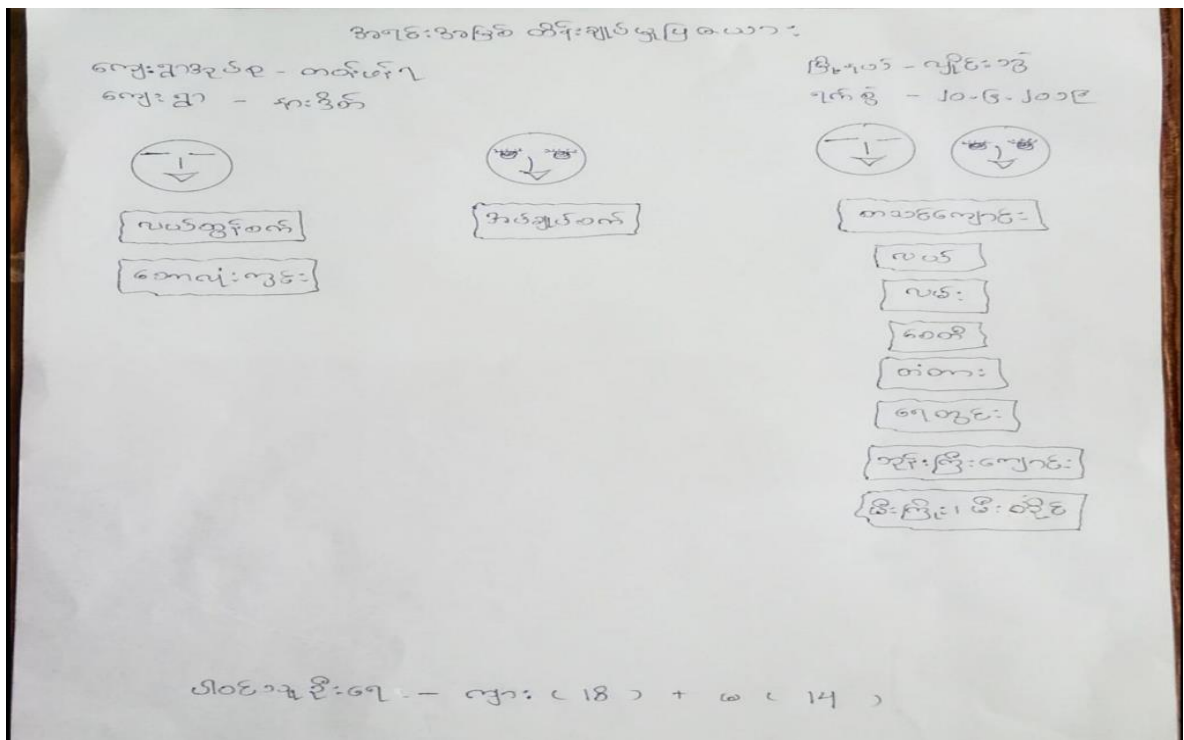 အရင်းအမြစ် ထိန်းချုပ်မှုပြ ဇယား
ကျေးရွာအုပ်စု - တတ်ဖက်ရ
မြို့နယ် - လှိုင်းဘွဲ့
ကျေးရွာ - နားဒိတ်
ရက်စွဲ - ၂၀-၆-၂၀၁၉
လယ်ထွန်စက်
အပ်ချုပ်စက်
စာသင်ကျောင်း
ဘောလုံးကွင်း
လယ်
လမ်း
စေတီ
တံတား
ရေတွင်း
ဘုန်းကြီးကျောင်း
မီးကြိုး၊ မီးစတိုင်
ပါဝင်သူဦးရေ - ကျား (18) + မ (14)